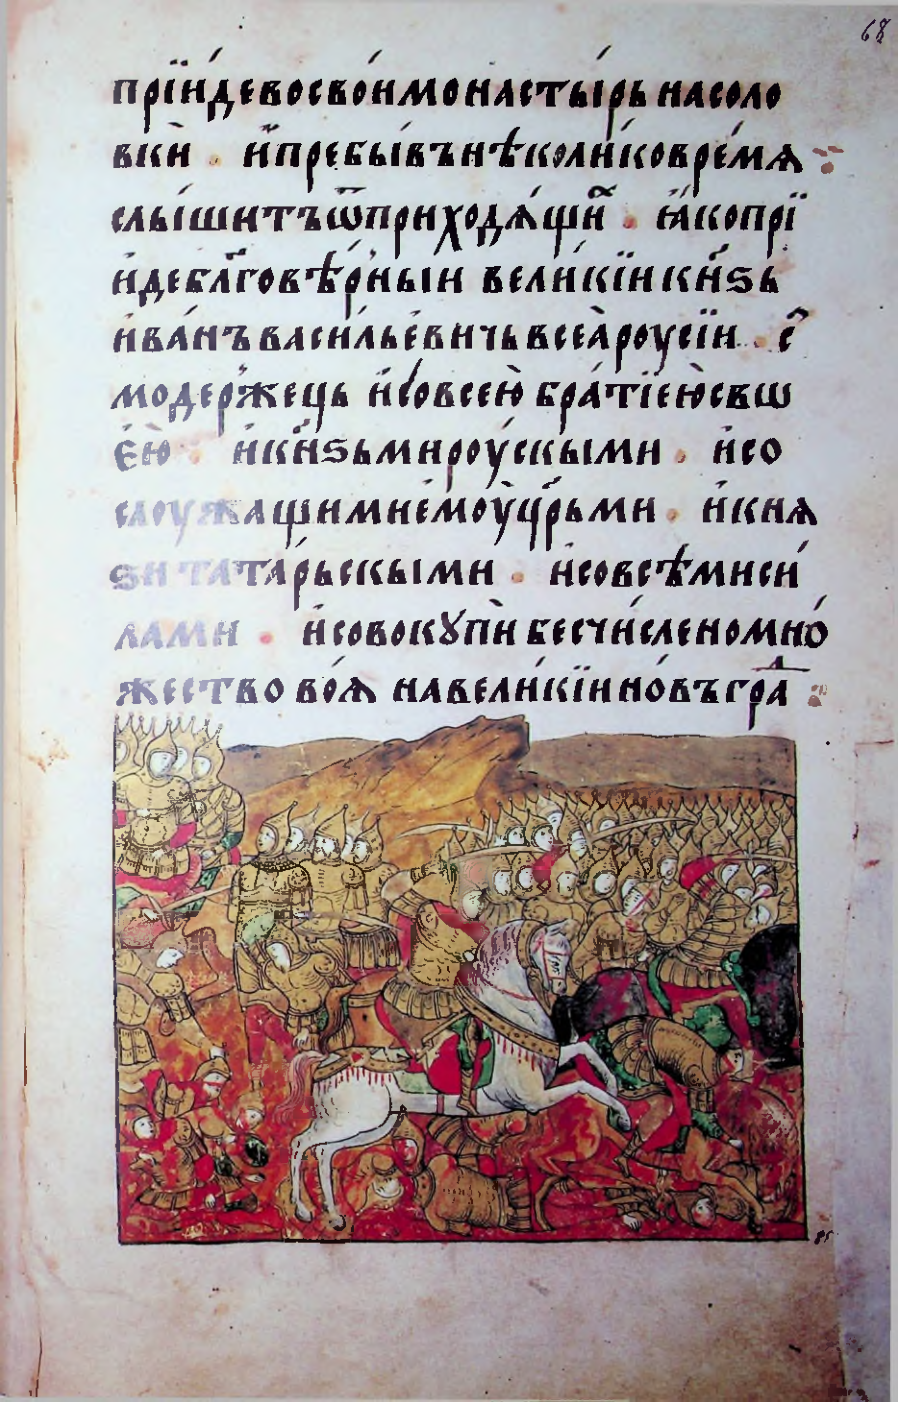 68
прїи́де восво́и монасты́рь насоло
вкѝ . и҆ пребы́въ нѣ коли́ко вре́мѧ :~
слы́шитъ ѿ приходѧ́щи̑ . ꙗ҆́ко прї
и́де бл҃говѣ́рныи вели́кїи кн҃ѕь
и҆ва́нъ васи́льевичь всеа̀ роусїи . с̑
модержець и҆ со всею̀ бра́тїею̀ свѡ
е́ю̀ . и҆ кн҃ѕьми роу́скыми . и҆ со
слоужащими е҆моу̀ цр҃ьми . и҆ кнѧ
ѕи тата́рьскыми . и҆ со всѣ́ми си́
лами . и҆ совокꙋпѝ бесчи́слено мно́
жество во́ѧ на вели́кїи но́въ гра́д :~
85